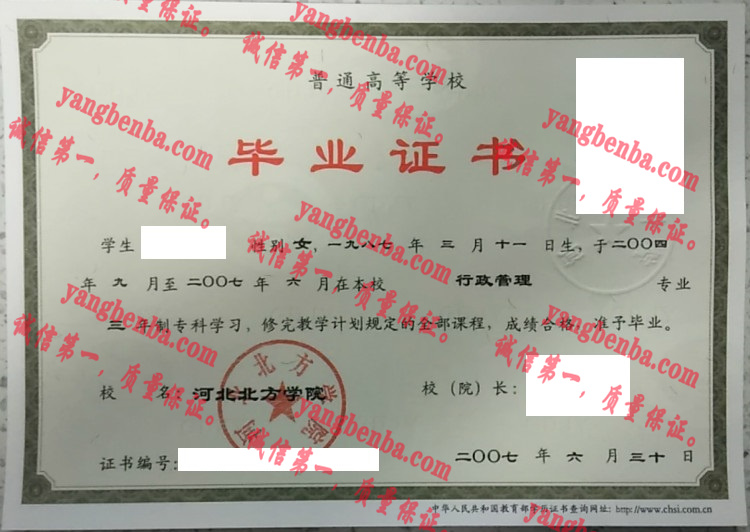 普通高等学校
毕业证书
学生 性别 女，一九八七 年 三 月 十一 日生，于二〇〇四
年 九 月至 二〇〇七 年 六 月在本校 行政管理 专业
三 年制专科学习，修完教学计划规定的全部课程，成绩合格，准予毕业。
校 名：河北北方学院 校（院）长：
河北北方学院
证书编号： 二〇〇七 年 六 月 三十 日
中华人民共和国教育部学历证书查询网址：http://www.chsi.com.cn
yangbenba.com
诚信第一，质量保证。
yangbenba.com
诚信第一，质量保证。
yangbenba.com
诚信第一，质量保证。
yangbenba.com
诚信第一，质量保证。
yangbenba.com
诚信第一，质量保证。
yangbenba.com
诚信第一，质量保证。
yangbenba.com
诚信第一，质量保证。